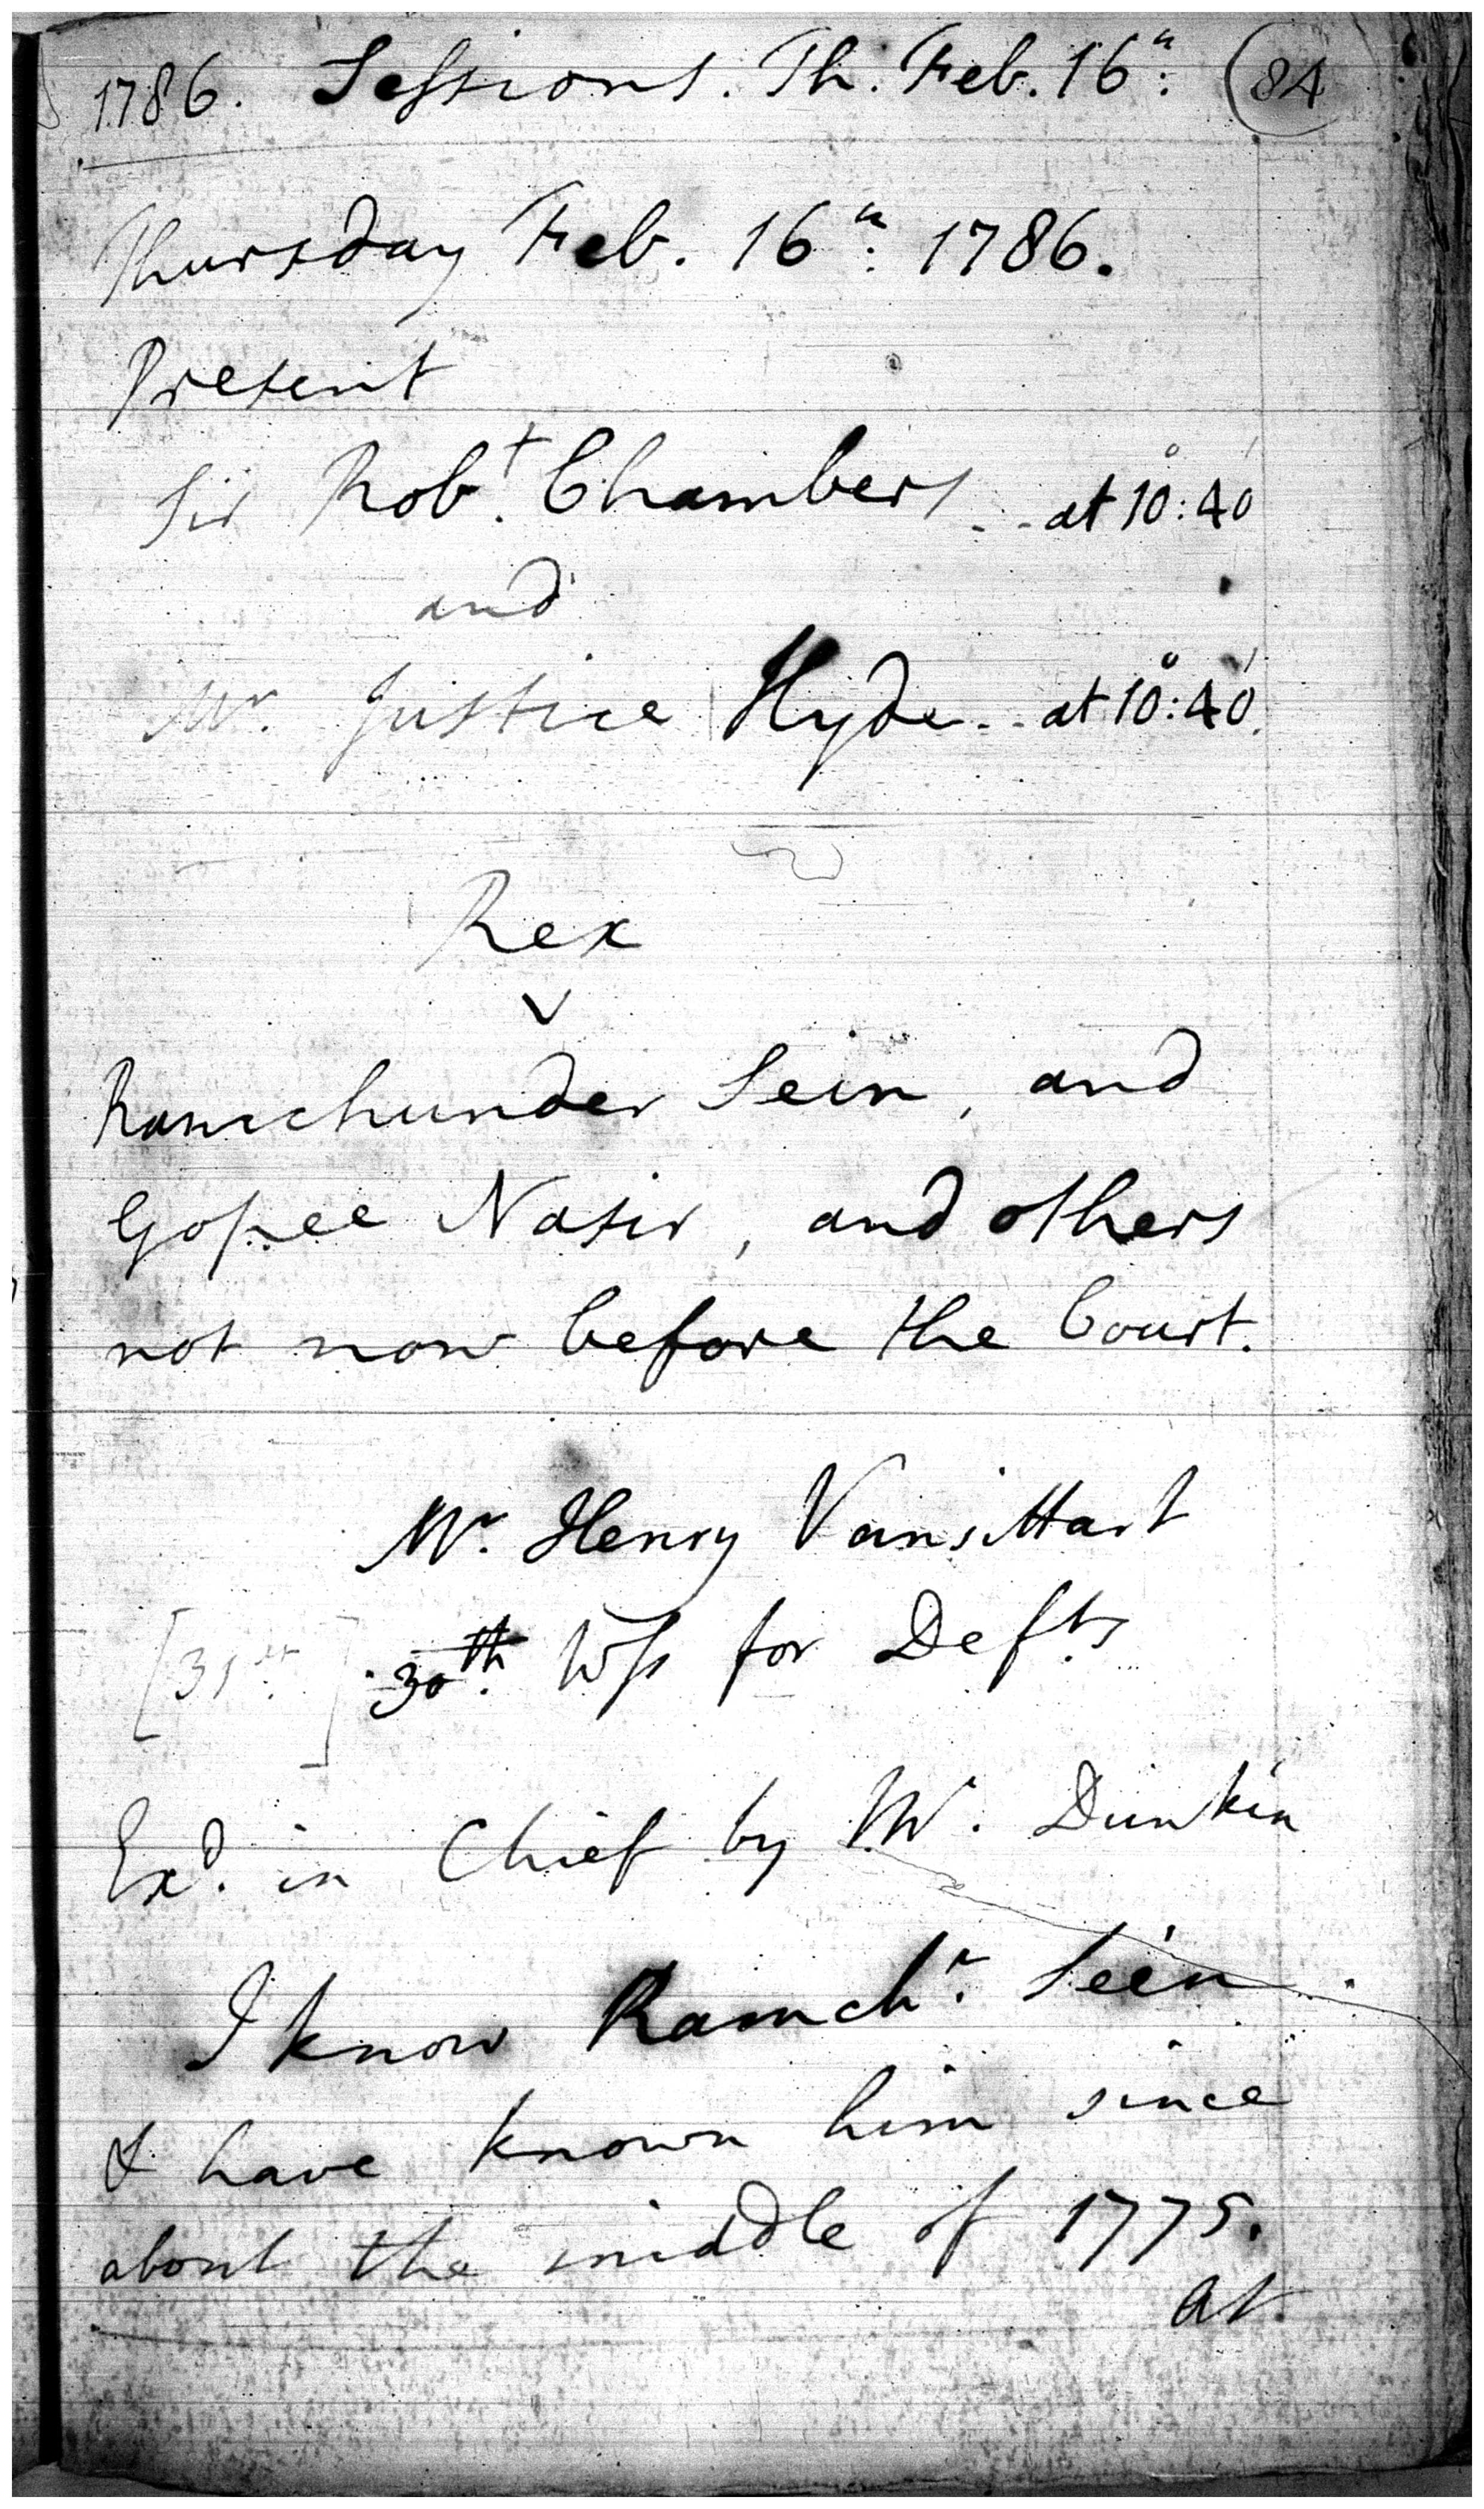 1786. Sessions. Th. Feb. 16th. (84
Thursday Feb. 16th. 1786.
Present
Sir Robt. Chambers - - at 10°:40'
and
Mr. Justice Hyde - - at 10°:40'.
Rex
v
Ramchunder Sein, and
Gopee Nasir, and others
not now before the Court.
Mr. Henry Vansittart
[31st.] 30th. Wss for Defts
Exd. in Chief by Mr. Dunkin
I know Ramchr. Sein
I have known him since
about the middle of 1775.
at